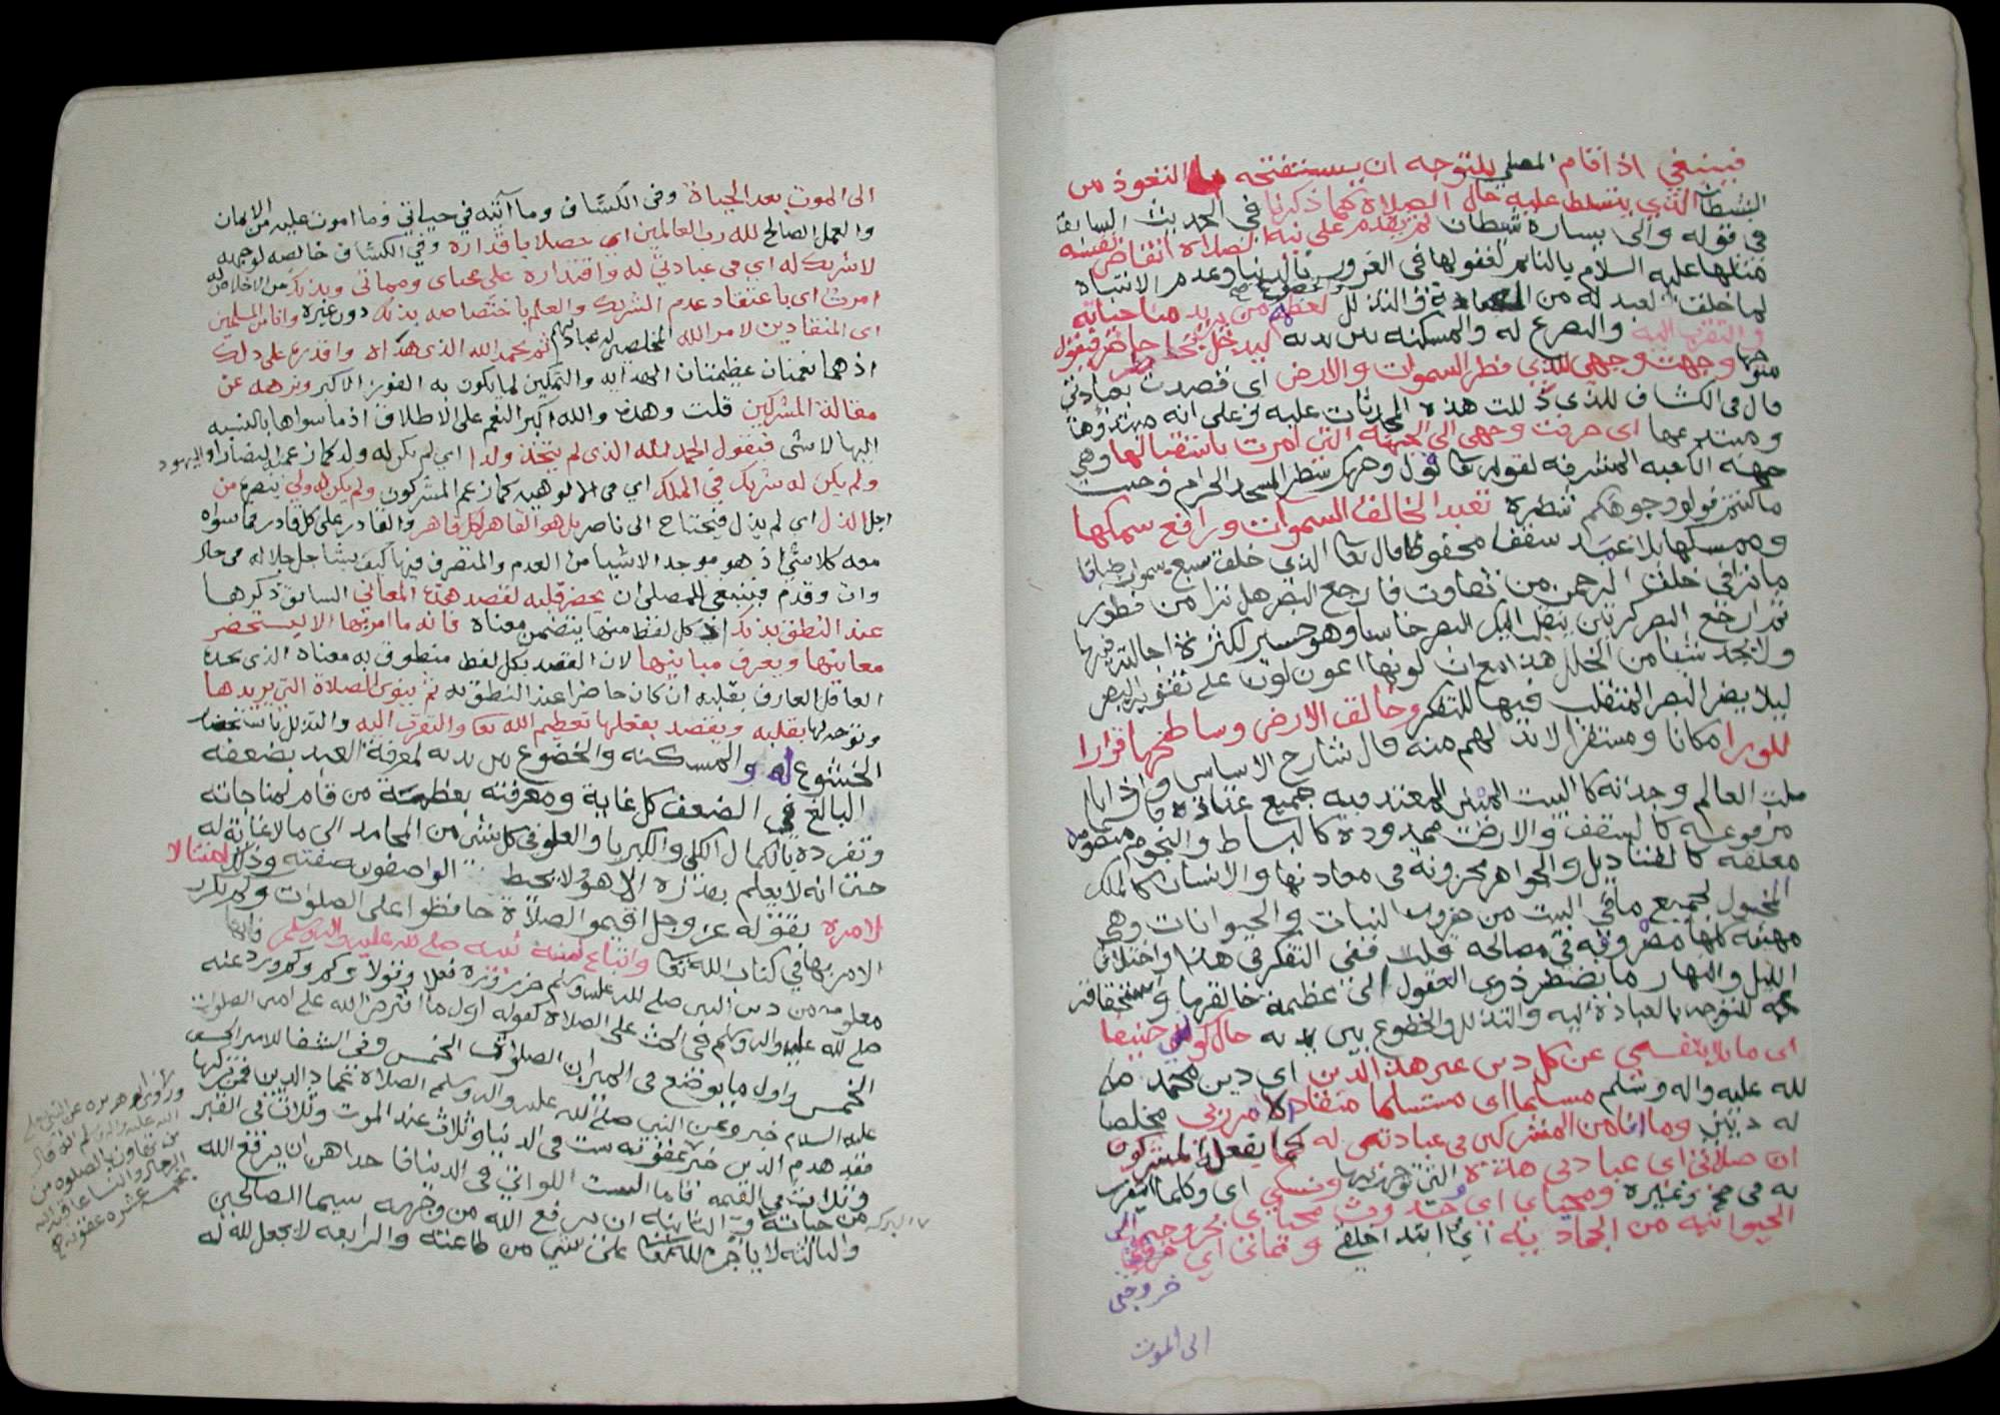 فينبغي اذا قام المصلي للتوجه ان يستفتحه بالتعوذ من
الشيطان الذي يتسلط عليه حال الصلاة كما ذكرنا في الحديث السابق
في قوله والى يساره شيطان ثم يقدم على نية الصلاة انتقاض نفسه
مثلها عليه السلام بالنائم لغفولها في الغرور بالدنيا وعدم الانتباه
لما خلقت لعبد له من العبادة والخضوع في التذلل لعظمة من يريد مناجاته
والتقرب اليه والتضرع له والمسكنه بين يديه ليدخل حاضر فيقول
متوجها وجهت وجهي للذي فطر السموات والارض اي قصدت بعبادتي
قال في الكشاف للذي دلت هذه المحدثات عليه وعلى انه مبتدؤها
ومبتدعها اي صرفت وجهي الى الجهة التي امرت باستقبالها وهي
جهة الكعبه المشرفه لقوله تعا فول وجهك شطر المسجد الحرام وحيث
ما كنتم فولوا وجوهكم شطره تعبدا لخالق السموات ورافع سمكها
وممسكها بلا عمد سقفا محفوظا قال تعا الذي خلق سبع سموات طباقا
ما ترا في خلق الرحمن من تفاوت فارجع البصر هل ترا من فطور
ثم ارجع البصر كرتين ينقلب اليك البصر خاسيا وهو حسير لكثرة اجالته فيها
ولا يجد شيئا من الخلل هذا مع ان لونها اعون لون على تقوية البصر
ليلا يضر البصر المتقلب فيها للتفكر وخالق الارض وساطحها قرارا
للورا مكانا ومستقرا لابد لهم منه قال شارح الاساس واذا
ملت العالم وجدته كالبيت المبني المعتد فيه جميع عتاده فالسما
مرفوعة كالسقف والارض ممدودة كالبساط والنجوم منصوبه
معلقه كالقناديل والجواهر مخزونه في معادنها والانسان كالملك
المخول لجميع ما في البيت من ضروب النبات والحيوانات وهي
مهيئه كلها مصروفه في مصالحه قلت ففي التفكر في هذا واختلاف
الليل والنهار ما يضطر ذوي العقول الى عظمة خالقها واستحقاقه
للتوجه بالعبادة اليه والتذلل والخضوع بين يديه حال كوني حنيفا
اي مايلا بنفسي عن كل دين غير هذا الدين اي دين محمد صلى
لله عليه واله وسلم مسلما اي مستسلما منقادا لامر ربي مخلصا
له ديني وما انا من المشركين في عبادتي له كما يفعل المشركون
ان صلاتي اي عبادتي هذه التي توجهت لها ونسكي اي وكلما اتقرب
به في حج وغيره ومحياي اي حدوث محياي بخروجي الى
الحيوانيه من الجماديه اي ابتدا خلقي ومماتي اي خروجي
خروجي
الى الموت
الى الموت بعد الحياة وفي الكشاف وما آتيه في حياتي وما اموت عليه من الايمان
والعمل الصالح لله رب العالمين اي حصلا باقداره وفي الكشاف خالصه لوجهه
لا شريك له اي في عبادتي له واقتداره على محياي ومماتي وبذلك من الاخلاص له
امرت اي باعتقاد عدم الشريك والعلم باختصاصه بذلك دون غيره وانا من المسلمين
اي المنقادين لامر الله المخلصين له عبادتهم ثم يحمد الله الذي هداه واقدره على ذلك
اذ هما نعمتان عظيمتان الهدايه والتمكين لما يكون به الفوز الاكبر ونزهه عن
مقالة المشركين قلت وهذه والله اكبر النعم على الاطلاق اذ ما سواها بالنسبه
اليها لاشي فيقول الحمد لله الذي لم يتخذ ولدا اي لم يكن له ولد كما زعم النصارا واليهود
ولم يكن له شريك في الملك اي في الالوهيه كما زعم المشركون ولم يكن له ولي ينصره من
اجل الذل اي لم يذل فيحتاج الى ناصر بل هو القاهر لكل قاهر والقادر على كل قادر فما سواه
معه كلاشي اذ هو موجد الاشيا من العدم والمتصرف فيها كيف يشا جل جلاله في حال
وان وقدم فينبغي للمصلي ان يحضر قلبه لقصد هذه المعاني السابق ذكرها
عند النطق بذلك اذ كل لفظ منها يتضمن معناه فانه ما امر بها الا ليستحضر
معانيها ويعرف مبانيها لان القصد بكل لفظ منطوق به معناه الذي يجده
العاقل العارف بقلبه ان كان حاضرا عند النطق به ثم ينوي الصلاة التي يريدها
وتوجه لها بقلبه ويقصد بفعلها تعظيم الله تعا والتقرب اليه والتذلل باستحضار
الخشوع له والمسكنه والخضوع بين يديه لمعرفة العبد بضعفه
البالغ في الضعف كل غاية ومعرفته بعظمة من قام لمناجاته
وتفرده بالكمال الكلي والكبريا والعلو في كل شي من المحامد الى ما لا غاية له
حتى انه لا يعلم بقدره الا هو ولا يحيط الواصفون صفته وذلك امتثالا
لامره بقوله عز وجل اقيمو الصلاة حافظوا على الصلوات وكم تكرر
الامر بها في كتاب الله تعا واتباع لسنة نبيه صلى لله عليه واله وسلم فانها
معلومه من دين النبي صلى لله عليه وسلم ضرورة فعلا وقولا وكم وكم ورد عنه
صلى لله عليه واله وسلم في الحث على الصلاة كقوله اول ما افترض الله على امتي الصلوات
الخمس واول ما يوضع في الميزان الصلوات الخمس وفي الشفا للامير الحسين
عليه السلام خبر وعن النبي صلى الله عليه واله وسلم الصلاة عماد الدين فمن تركها
فقد هدم الدين خبر عقوبته ست في الدنيا وثلاث عند الموت وثلاث في القبر
وثلاث في القيمه فاما الست اللواتي في الدنيا فاحداهن ان يرفع الله
البركه من حياته والثانيه ان يرفع الله من وجهه سيما الصالحين
والثالثه لا ياجره الله تعا على شي من طاعته والرابعه لا يجعل لله له
وروى ابو هريره عن النبي صلى
الله عليه واله وسلم انه قال
من تهاون بالصلوه من
الرجال والنسا عاقبه الله
بخمسة عشره عقوبه